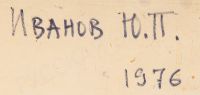 Иванов Ю.П.
1976